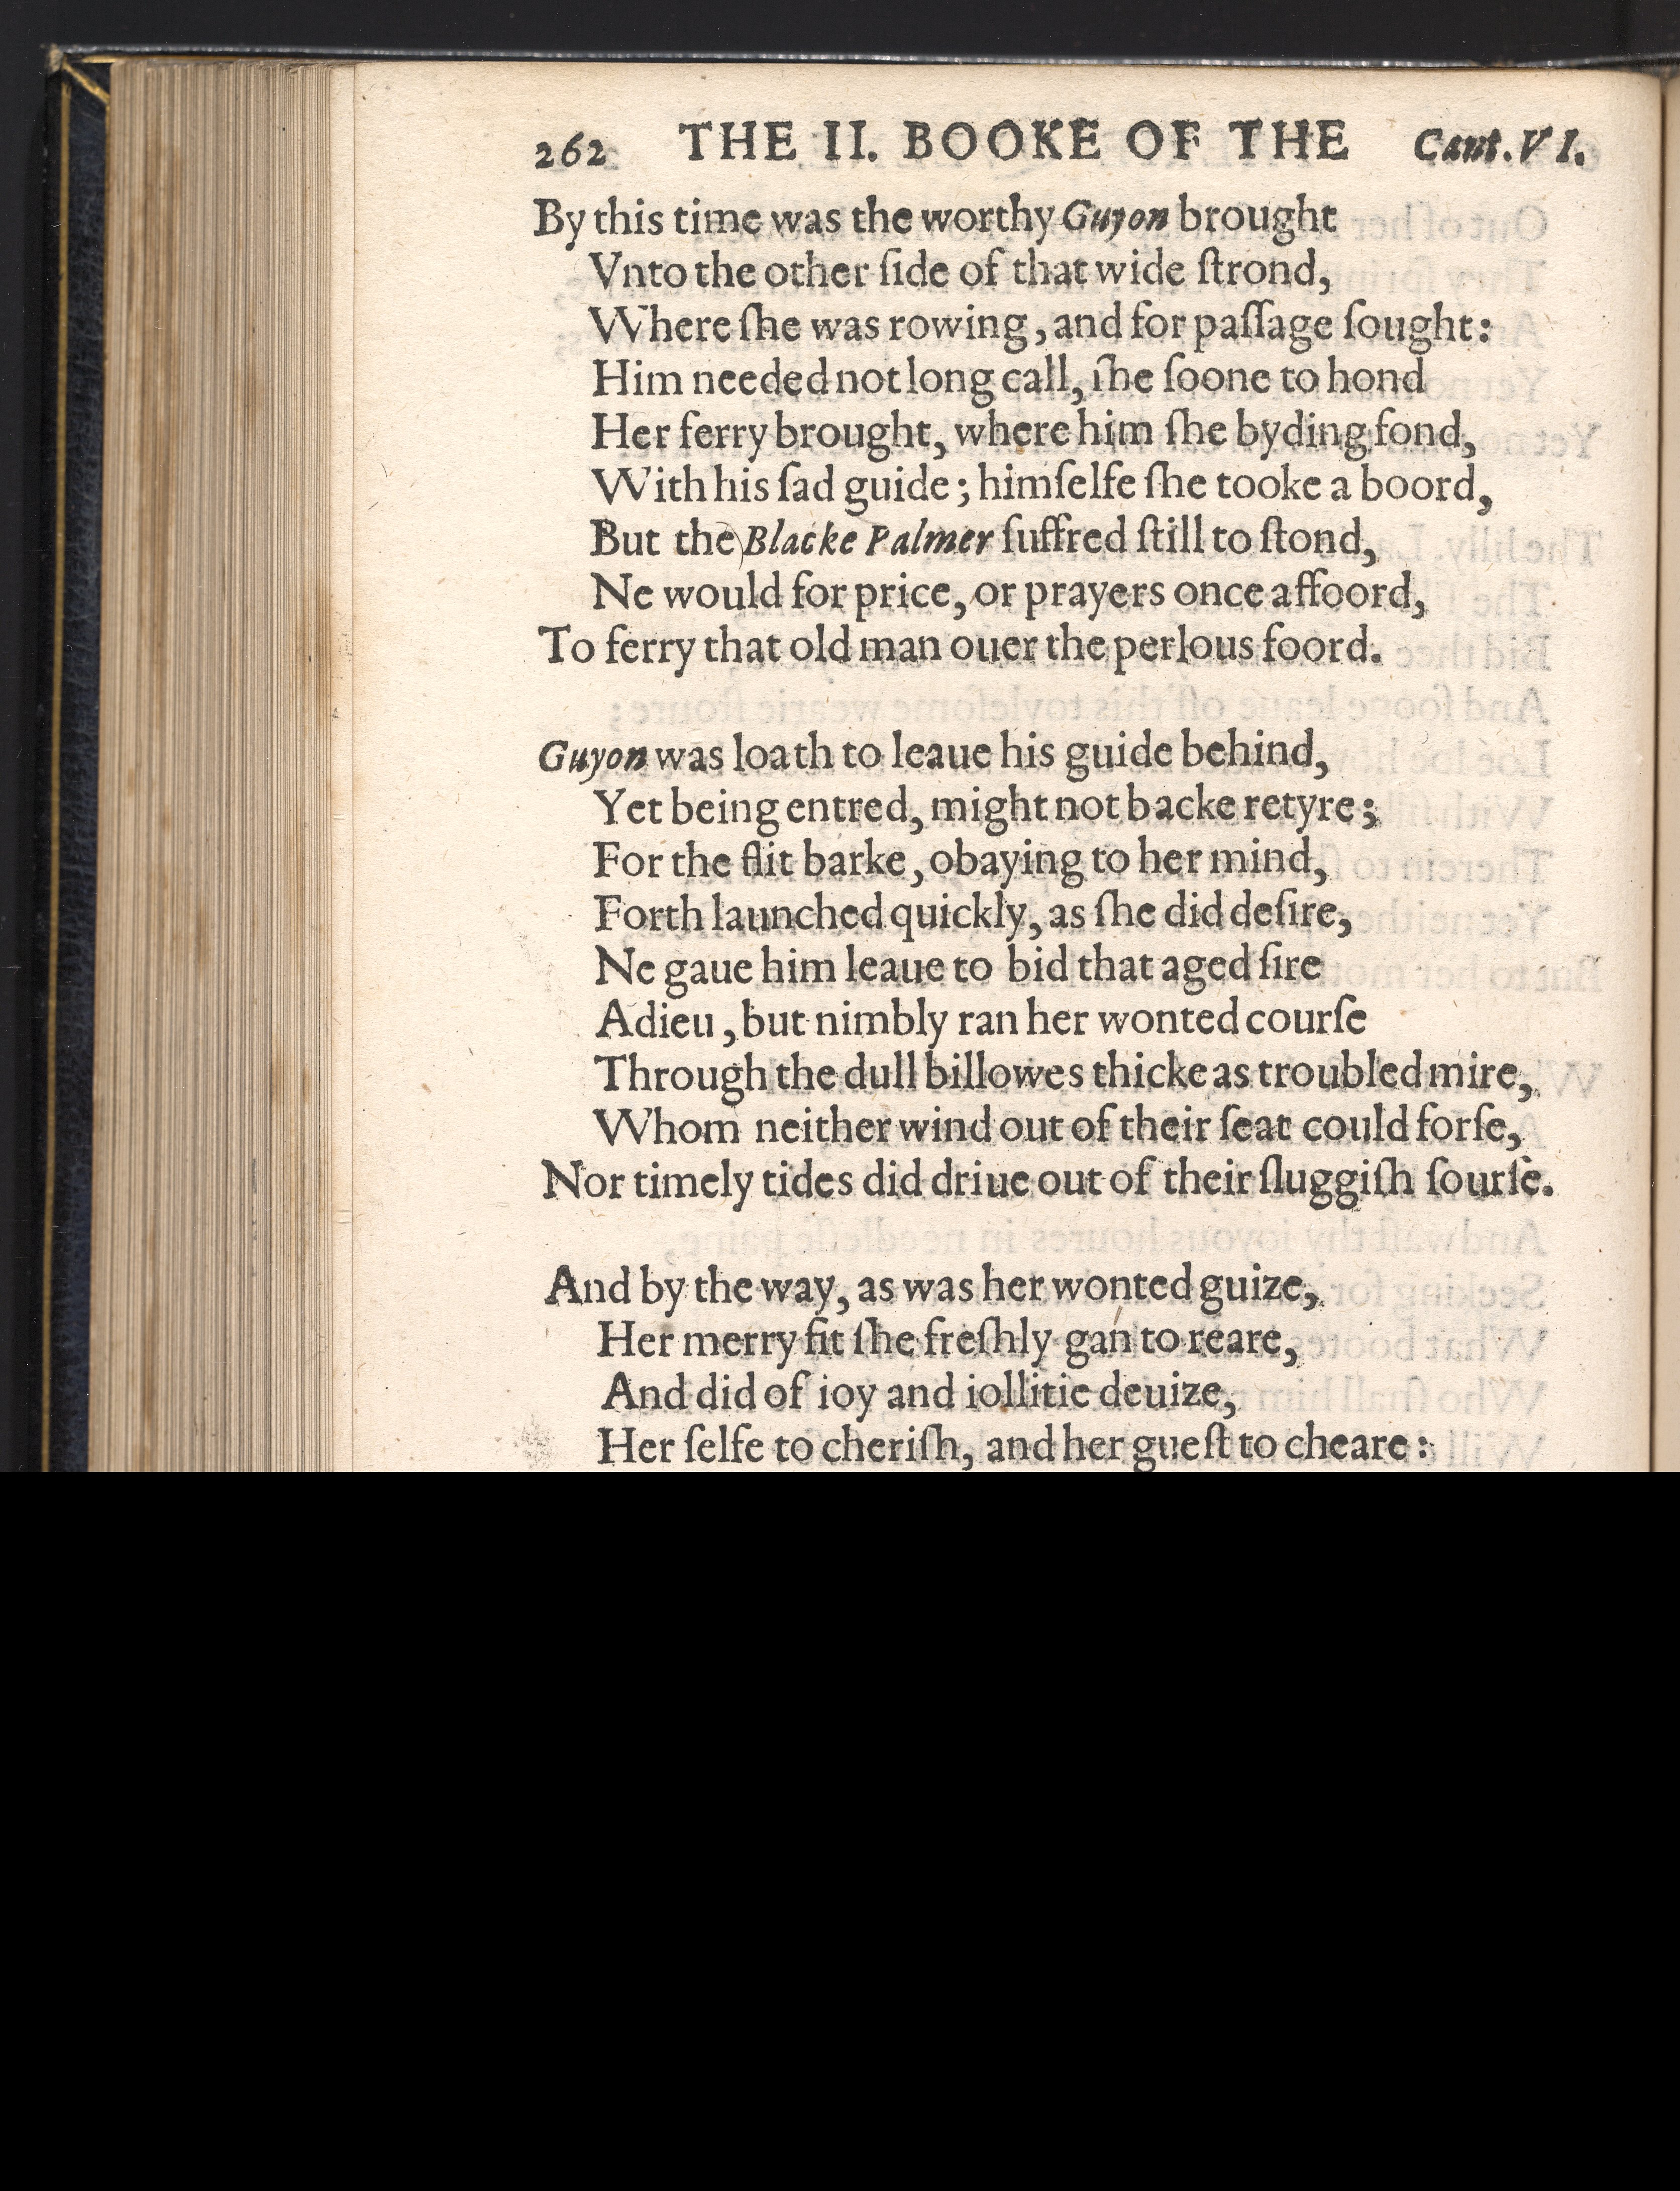 262 THE II. BOOKE OF THE Cant. VI.
By this time was the worthy Guyon brought
Vnto the other ſide of that wide ſtrond,
Where ſhe was rowing, and for paſſage ſought:
Him needed not long call, ſhe ſoone to hond
Her ferry brought, where him ſhe byding fond,
With his ſad guide; himſelfe ſhe tooke a boord,
But the Blacke Palmer ſuffred ſtill to ſtond,
Ne would for price, or prayers once affoord,
To ferry that old man ouer the perlous foord.
Guyon was loath to leaue his guide behind,
Yet being entred, might not backe retyre;
For the flit barke, obaying to her mind,
Forth launched quickly, as ſhe did deſire,
Ne gaue him leaue to bid that aged ſire
Adieu, but nimbly ran her wonted courſe
Through the dull billowes thicke as troubled mire,
Whom neither wind out of their ſeat could forſe,
Nor timely tides did driue out of their ſluggiſh ſourſe.
And by the way, as was her wonted guize,
Her merry fit ſhe freſhly gan to reare,
And did of ioy and iollitie deuize,
Her ſelfe to cheriſh, and her gueſt to cheare: